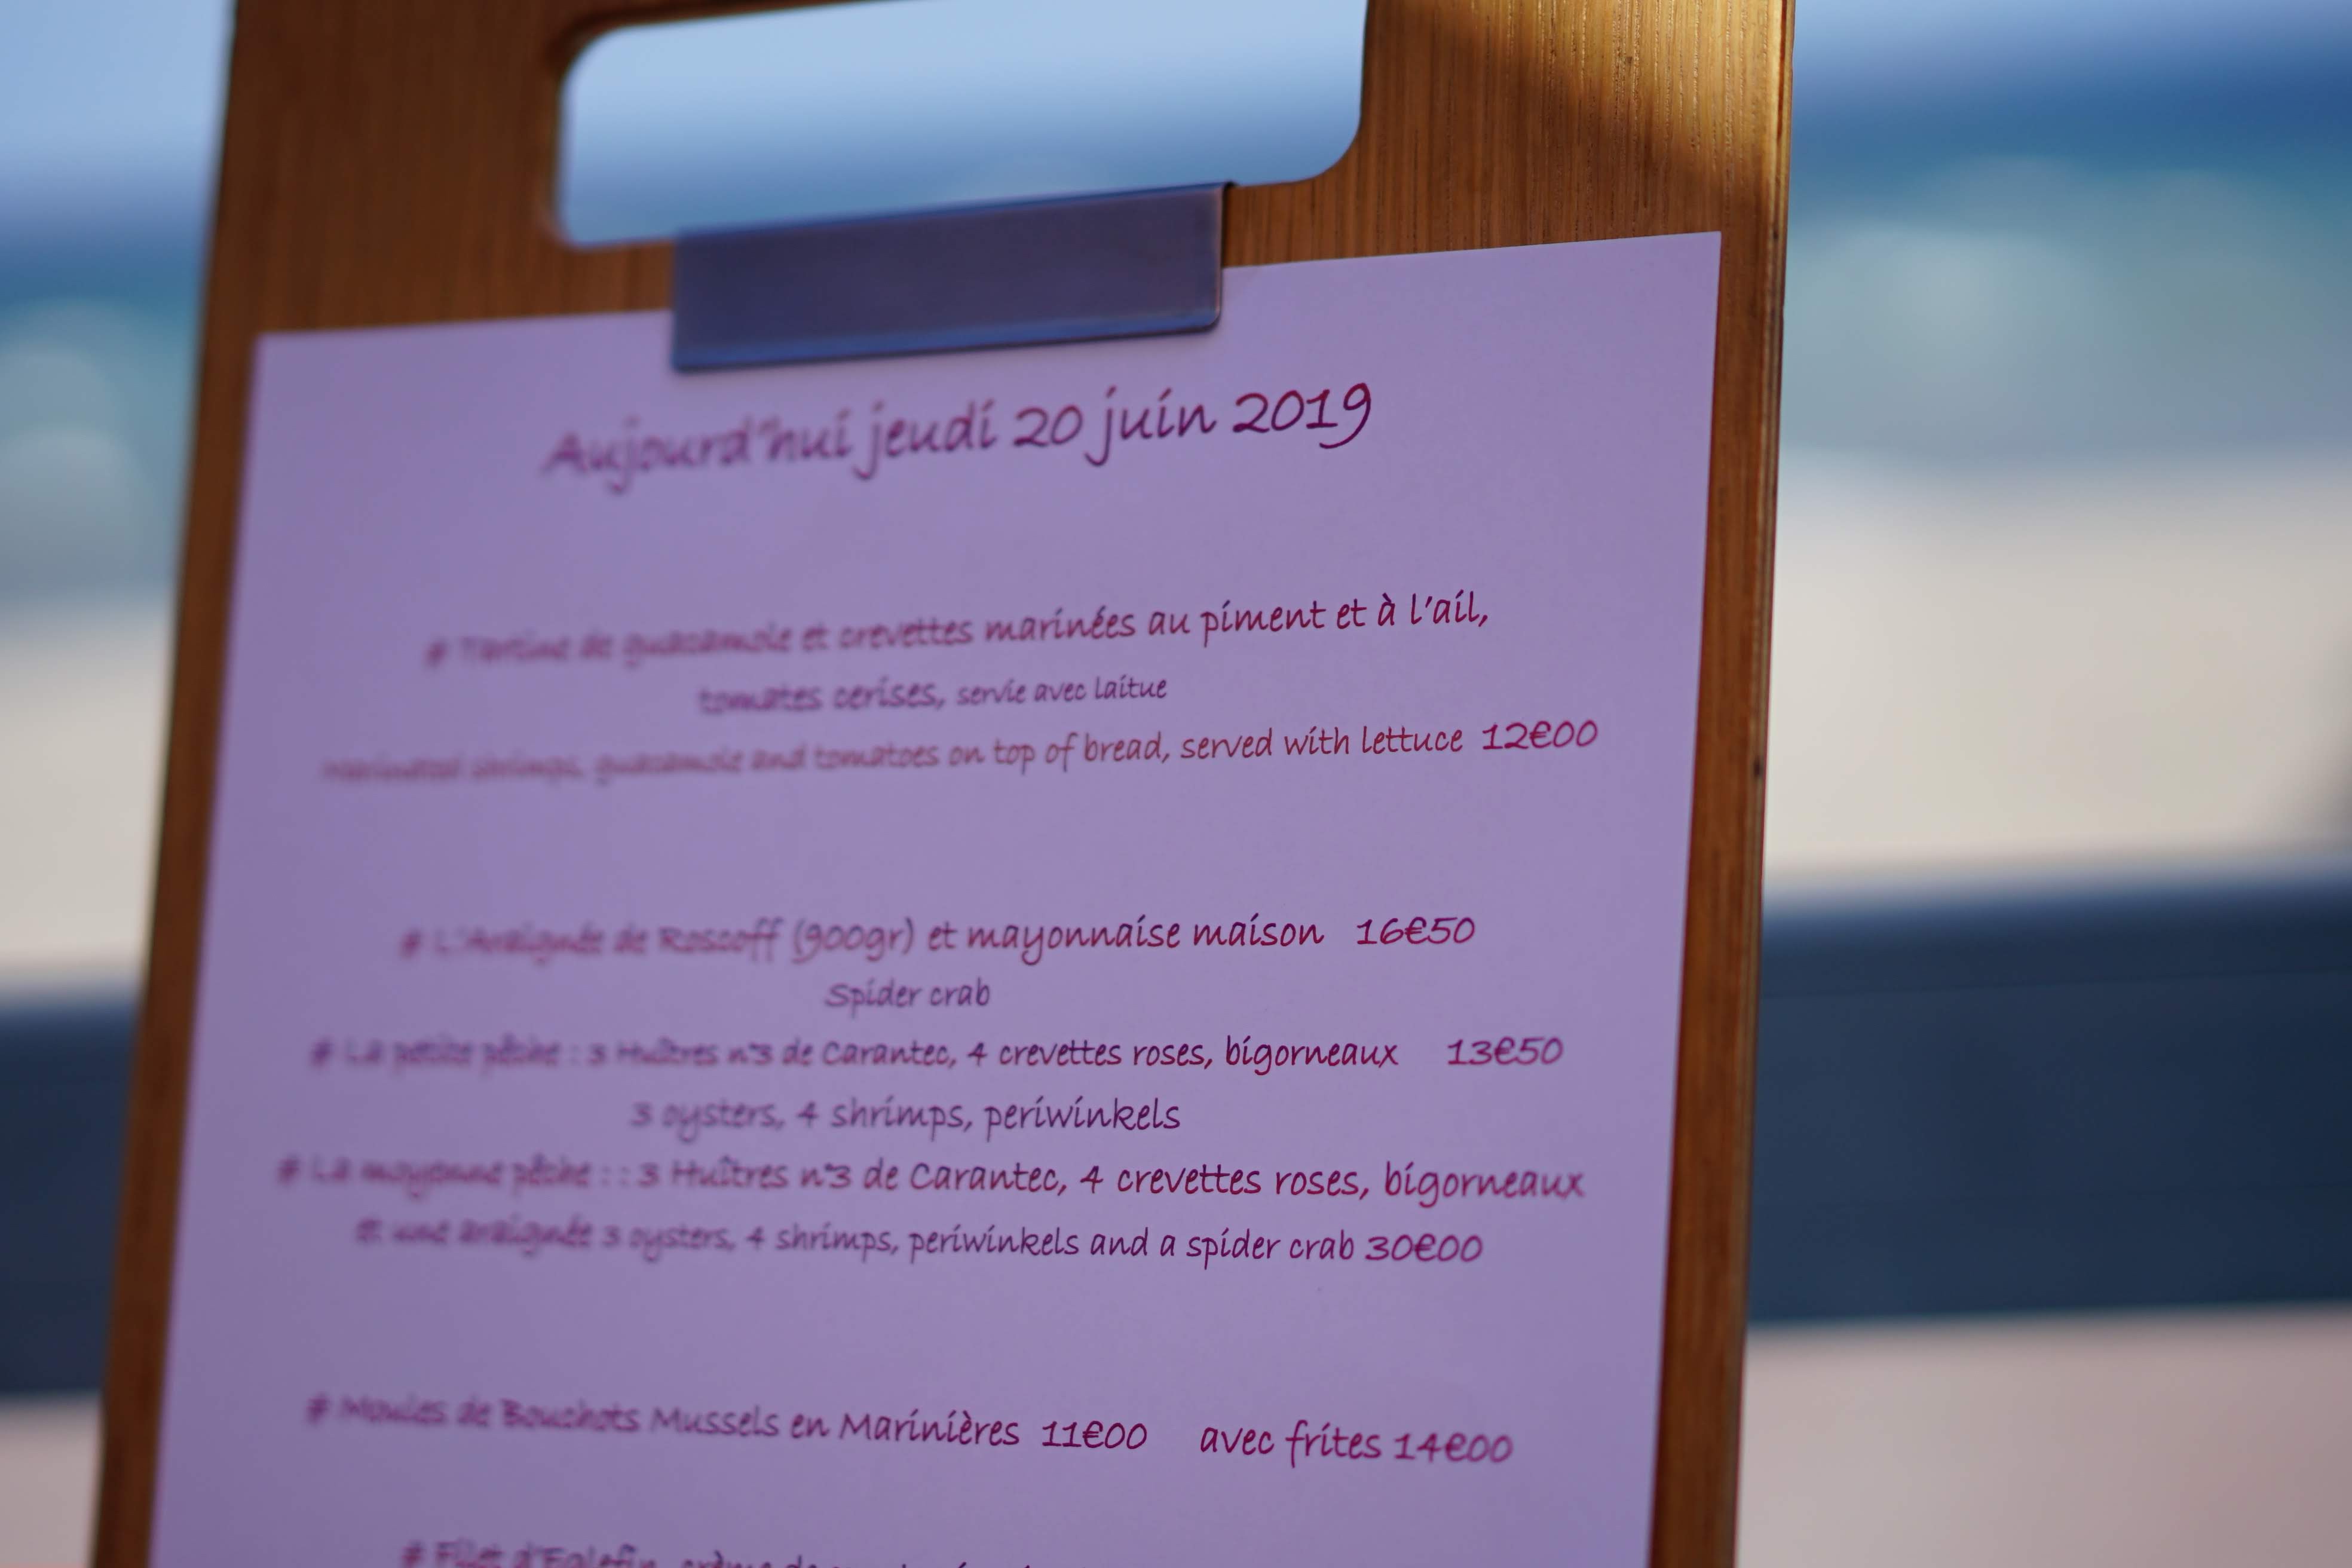 Aujourd'hui jeudi 20 juin 2019
# Tartine de guacamole et crevettes marinées au piment et à l'ail,
tomates cerises, servie avec laitue
Marinated shrimps, guacamole and tomatoes on top of bread, served with lettuce 12€00
# L'Araignée de Roscoff (900gr) et mayonnaise maison 16€50
Spider crab
# La petite pêche : 3 Huîtres n°3 de Carantec, 4 crevettes roses, bigorneaux 13€50
3 oysters, 4 shrimps, periwinkels
# La moyenne pêche : : 3 Huîtres n°3 de Carantec, 4 crevettes roses, bigorneaux
et une araignée 3 oysters, 4 shrimps, periwinkels and a spider crab 30€00
# Moules de Bouchots Mussels en Marinières 11€00 avec frites 14€00
# Filet d'Eglefin, crème de